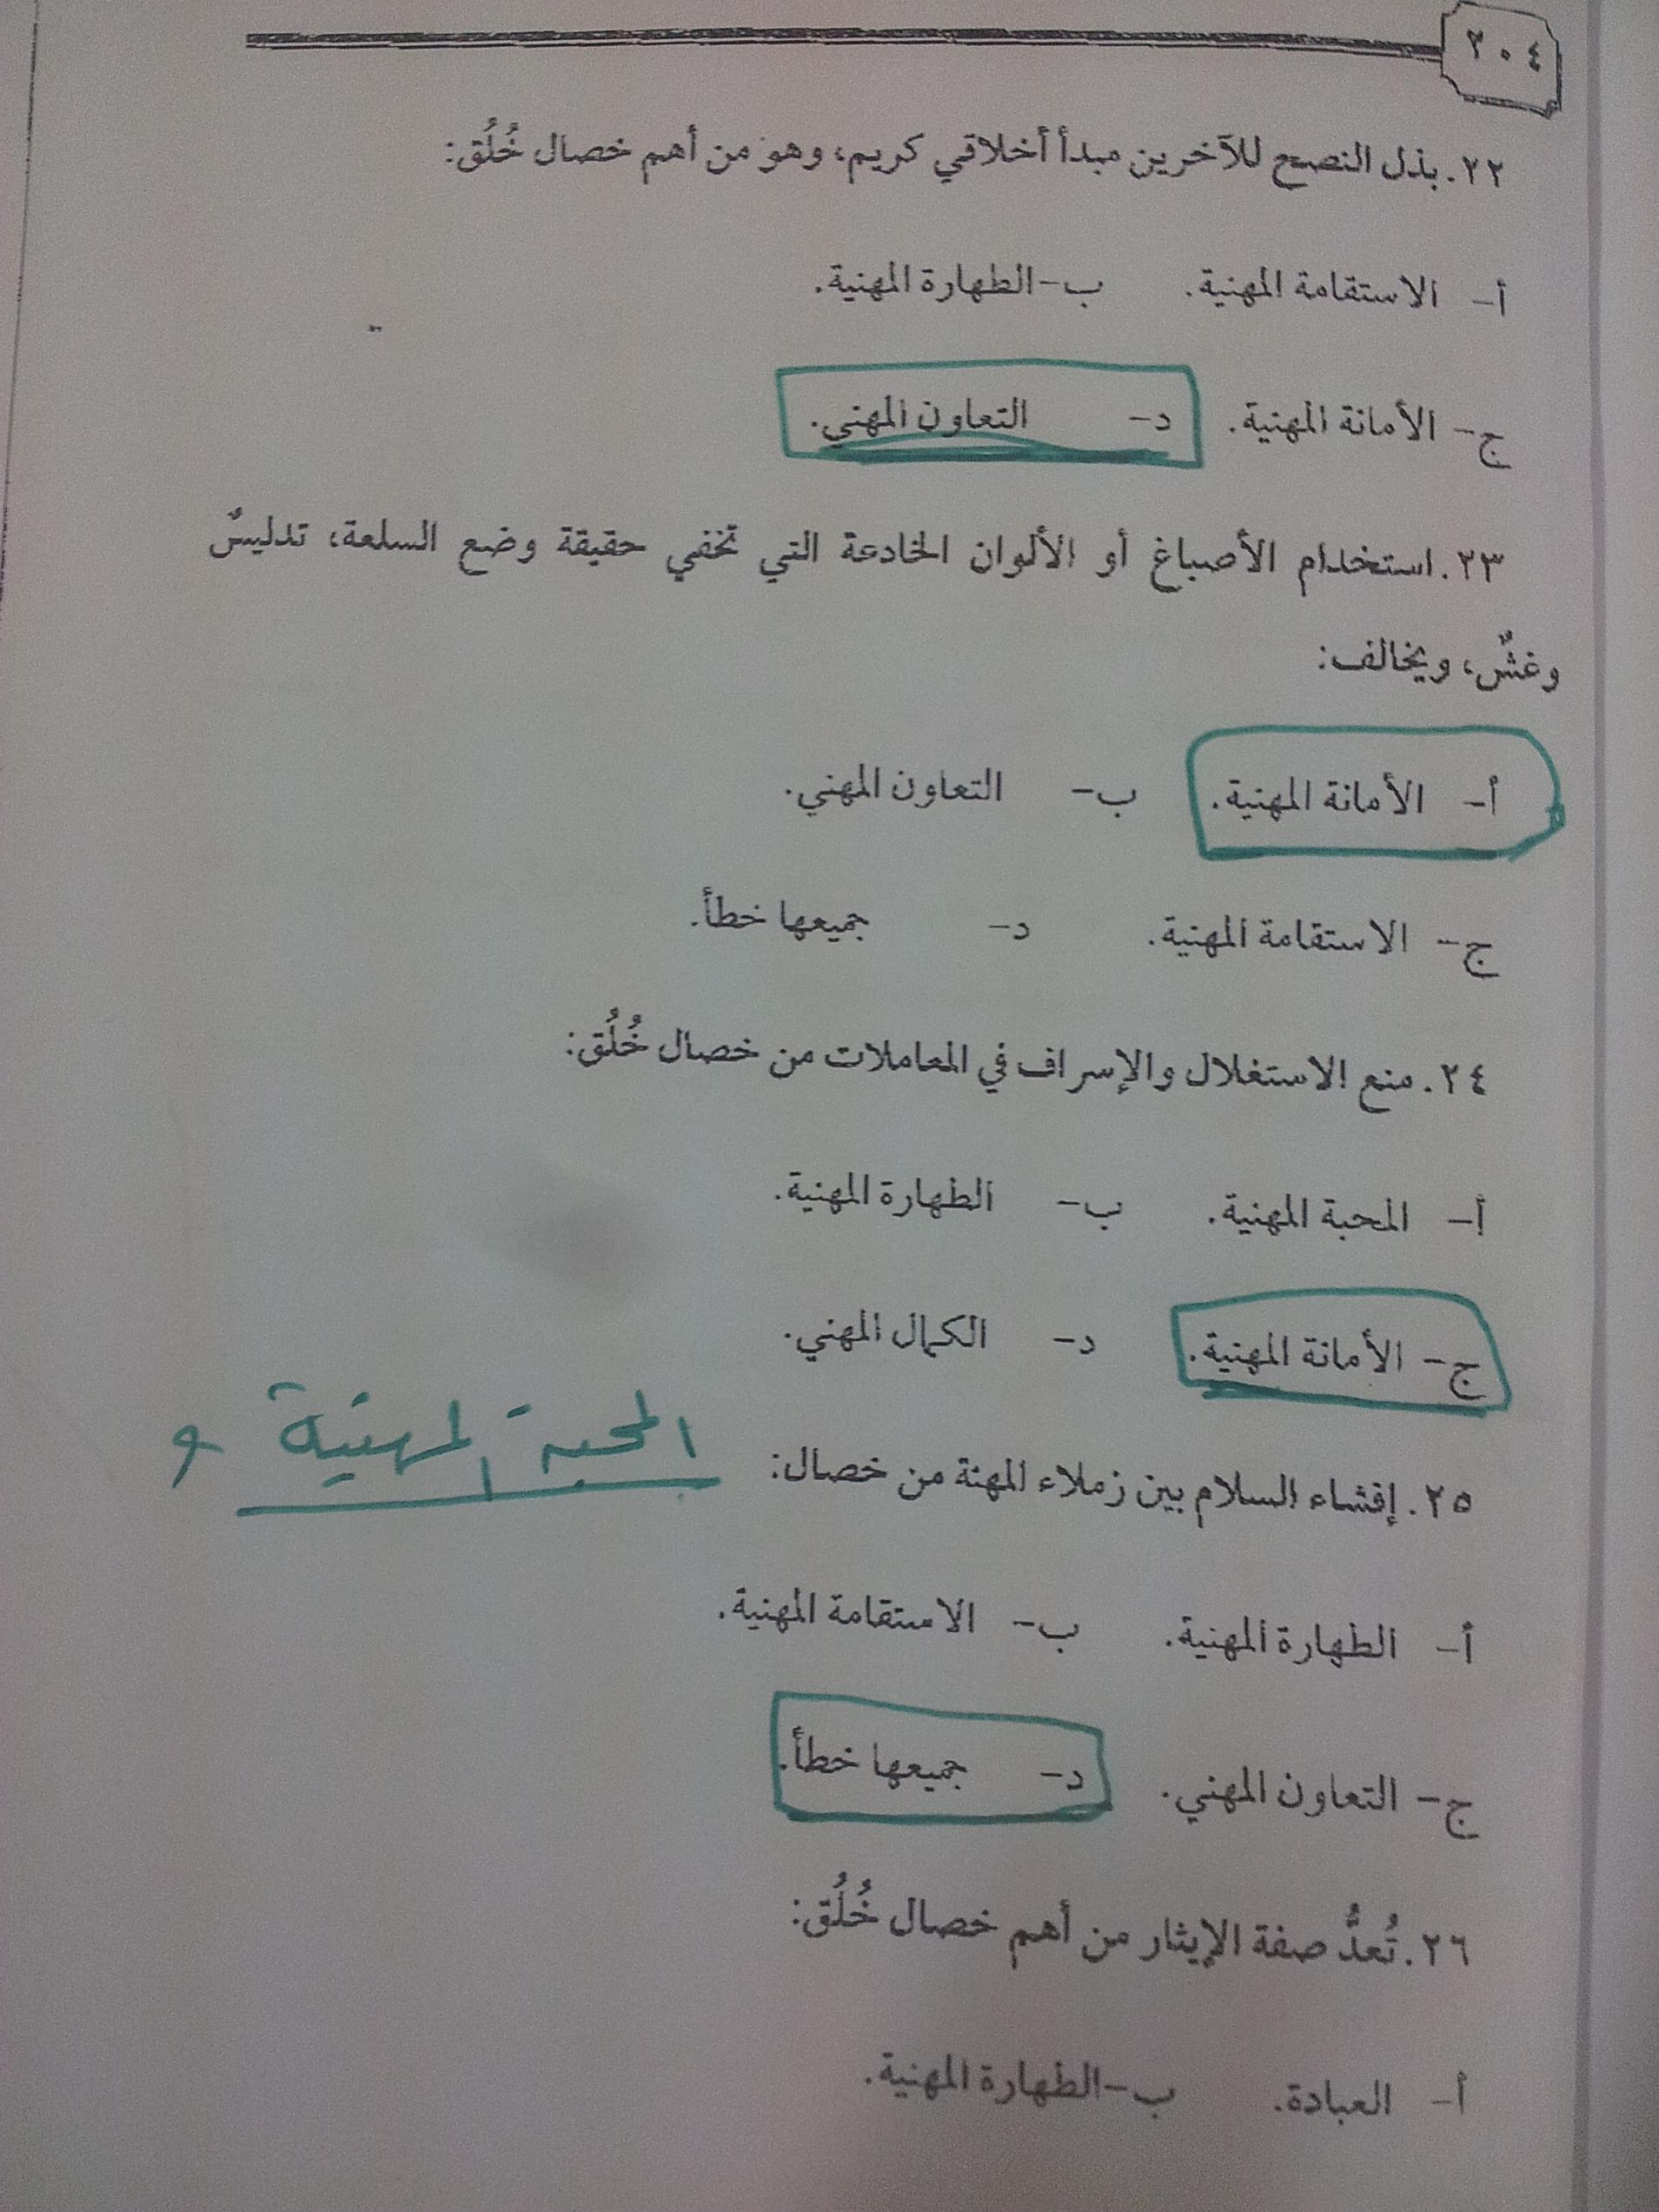 ٢٠٤
٢٢. بذل النصح للآخرين مبدأ أخلاقي كريم، وهو من أهم خصال خُلُق:
أ- الاستقامة المهنية. ب- الطهارة المهنية.
ج- الأمانة المهنية. د- التعاون المهني.
٢٣. استخدام الأصباغ أو الألوان الخادعة التي تخفي حقيقة وضع السلعة، تدليسٌ
وغشٌ، ويخالف:
أ- الأمانة المهنية. ب- التعاون المهني.
ج- الاستقامة المهنية. د- جميعها خطأ.
٢٤. منع الاستغلال والإسراف في المعاملات من خصال خُلُق:
أ- المحبة المهنية. ب- الطهارة المهنية.
ج- الأمانة المهنية. د- الكمال المهني.
٢٥. إفشاء السلام بين زملاء المهنة من خصال: المحبة المهنية
أ- الطهارة المهنية. ب- الاستقامة المهنية.
ج- التعاون المهني. د- جميعها خطأ.
٢٦. تُعدُّ صفة الإيثار من أهم خصال خُلُق:
أ- العبادة. ب- الطهارة المهنية.